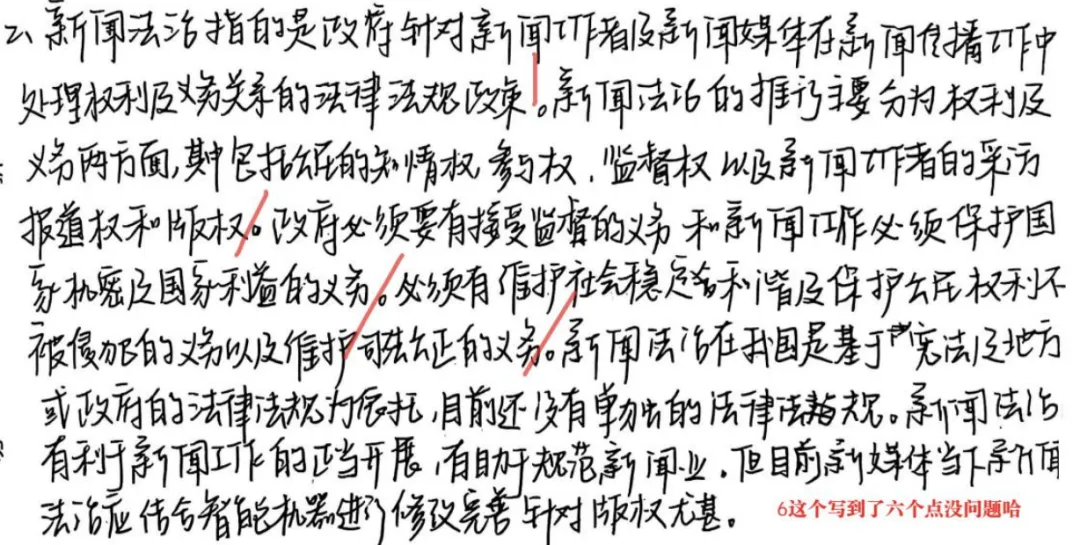 2、新闻法治指的是政府针对新闻工作者及新闻媒体在新闻传播工作中
处理权利及义务关系的法律法规政策。新闻法治的推行主要分为权利及
义务两方面,其中包括公民的知情权,参与权、监督权以及新闻工作者的采访
报道权和版权。政府必须要有接受监督的义务和新闻工作必须保护国
家机密及国家利益的义务。必须有维护社会稳定和谐及保护公民权利不
被侵犯的义务以及维护司法公正的义务。新闻法治在我国是基于宪法及地方
或政府的法律法规为依托,目前还没有单独出的法律法规。新闻法治
有利于新闻工作的正当开展,有助于规范新闻业。但目前新媒体当下新闻
法治应结合智能机器进行修改完善针对版权尤甚。
6这个写到了六个点没问题哈